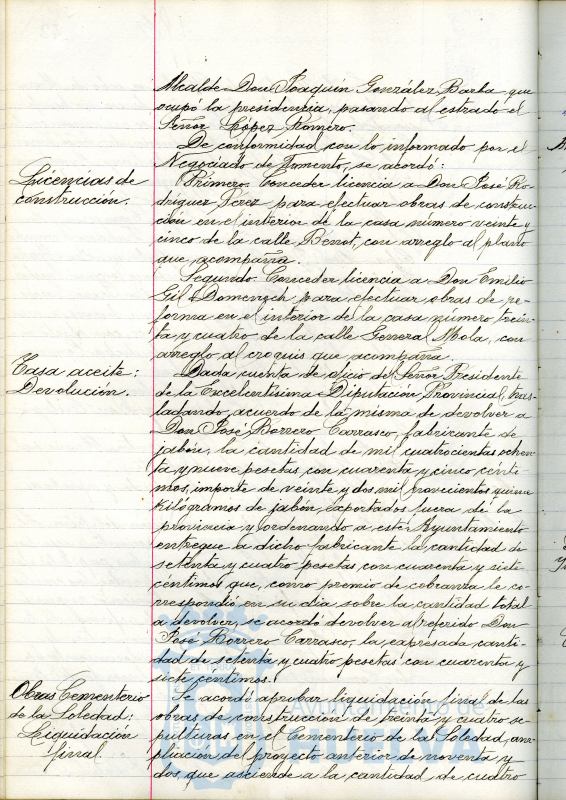 Alcalde Don Joaquín González Barba que
ocupó la presidencia, pasando al estrado el
Señor López Romero.
De conformidad con lo informado por el
Negociado de Fomento, se acordó:
Licencias de
construcción.
Primero. Conceder licencia a Don José Ro-
dríguez Perez para efectuar obras de construc-
ción en el interior de la casa número veinte y
cinco de la calle Benot, con arreglo al plano
que acompaña.
Segundo. Conceder licencia a Don Emilio
Gil Domensch para efectuar obras de re-
forma en el interior de la casa número trein-
ta y cuatro de la calle General Mola, con
arreglo al croquis que acompaña.
Tasa aceite:
Devolución.
Dada cuenta de oficio del Señor Presidente
de la Excelentísima Diputación Provincial, tras-
ladando acuerdo de la misma de devolver a
Don José Borrero Carrasco, fabricante de
jabón, la cantidad de mil cuatrocientas ochen-
ta y nueve pesetas con cuarenta y cinco cénti-
mos, importe de veinte y dos mil novecientos quince
kilógramos de jabón, exportados fuera de la
provincia y ordenando a este Ayuntamiento
entregue a dicho fabricante la cantidad de
setenta y cuatro pesetas con cuarenta y siete
céntimos que, como premio de cobranza le co-
rrespondió en su dia sobre la cantidad total
a devolver, se acordó devolver al referido Don
José Borrero Carrasco, la expresada canti-
dad de setenta y cuatro pesetas con cuarenta y
siete céntimos.
Obras Cementerio
de la Soledad:
Liquidación
final.
Se acordó aprobar liquidación final de las
obras de construcción de treinta y cuatro se-
pulturas en el Cementerio de la Soledad, am-
pliación del proyecto anterior de noventa y
dos, que asciende a la cantidad de cuatro
Ayuntamiento de
HUELVA